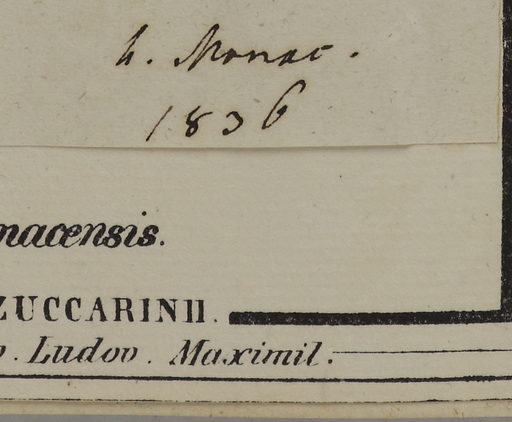 h. Monac.
1836
nacensis.
ZUCCARINII.
p. Ludov. Maximil.